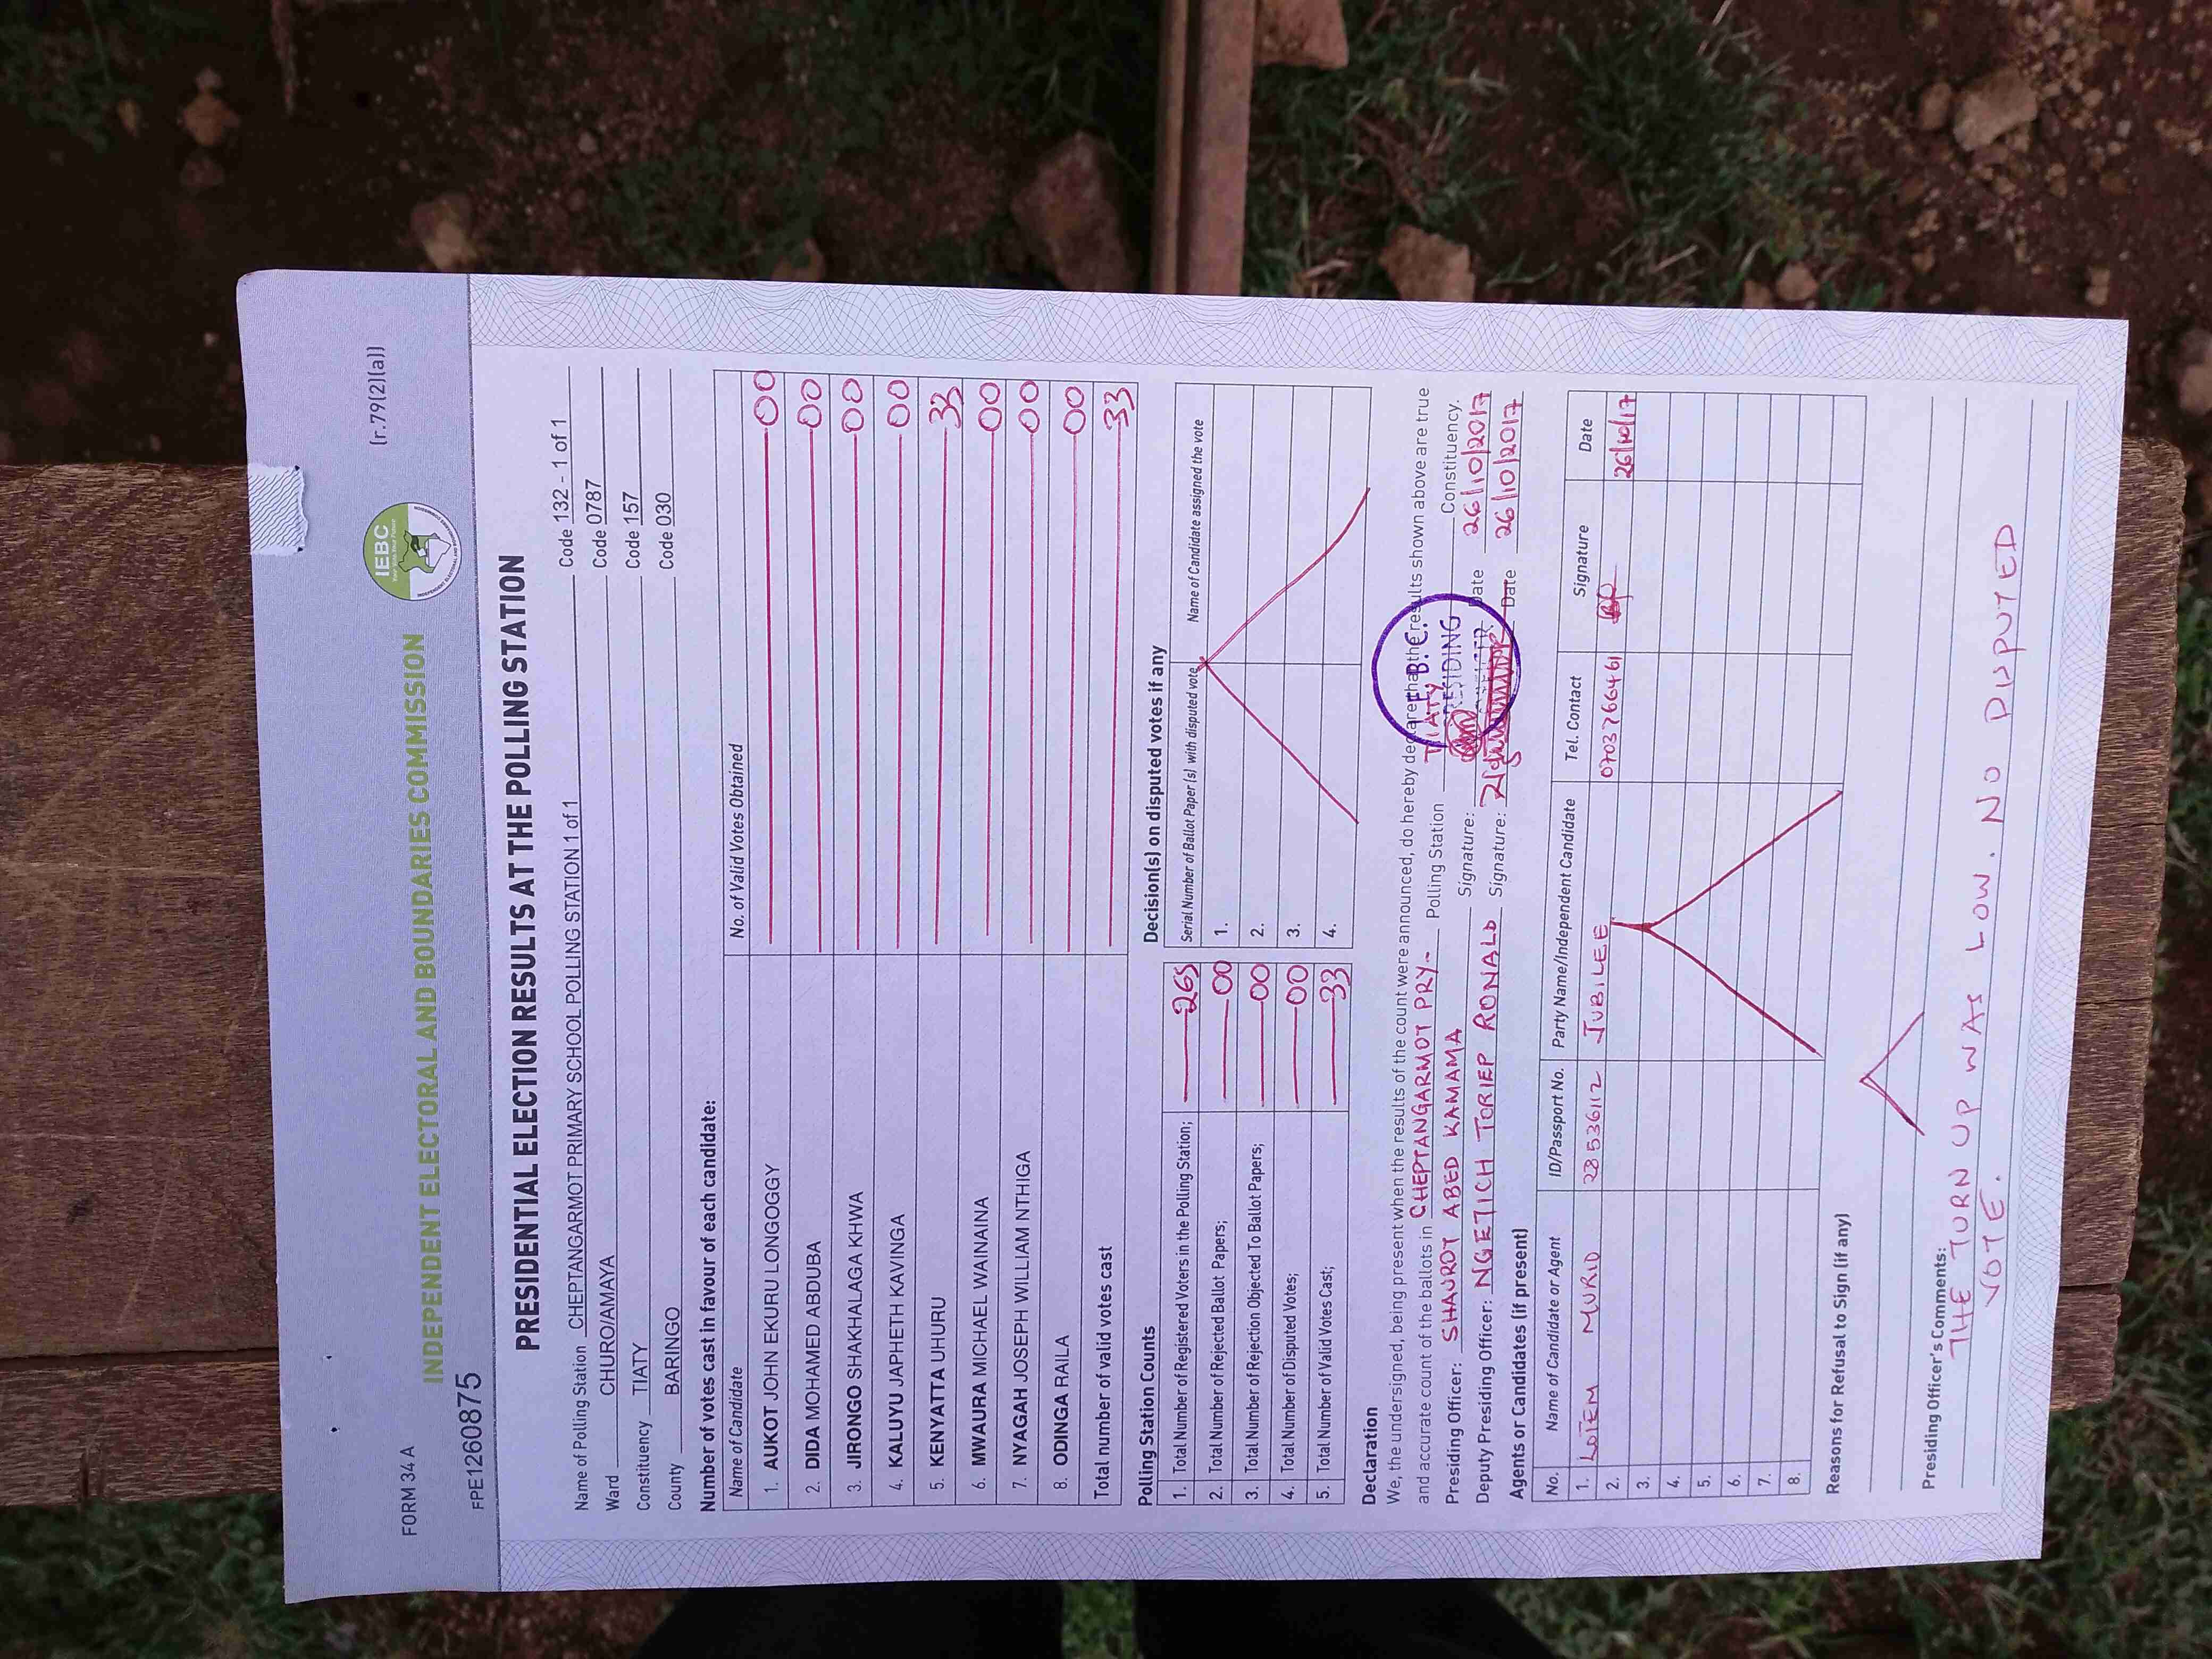 FORM 34 A
(r.79(2)(a))
INDEPENDENT ELECTORAL AND BOUNDARIES COMMISSION
IEBC
FPE1260875
PRESIDENTIAL ELECTION RESULTS AT THE POLLING STATION
Name of Polling Station CHEPTANGARMOT PRIMARY SCHOOL POLLING STATION 1 of 1 Code 132 - 1 of 1
Ward CHURO/AMAYA Code 0787
Constituency TIATY Code 157
County BARINGO Code 030
Number of votes cast in favour of each candidate:
Name of Candidate No. of Valid Votes Obtained
1. AUKOT JOHN EKURU LONGOGGY 00
2. DIDA MOHAMED ABDUBA 00
3. JIRONGO SHAKHALAGA KHWA 00
4. KALUYU JAPHETH KAVINGA 00
5. KENYATTA UHURU 33
6. MWAURA MICHAEL WAINAINA 00
7. NYAGAH JOSEPH WILLIAM NTHIGA 00
8. ODINGA RAILA 00
Total number of valid votes cast 33
Polling Station Counts
1. Total Number of Registered Voters in the Polling Station; 265
2. Total Number of Rejected Ballot Papers; 00
3. Total Number of Rejection Objected To Ballot Papers; 00
4. Total Number of Disputed Votes; 00
5. Total Number of Valid Votes Cast; 33
Decision(s) on disputed votes if any
Serial Number of Ballot Paper (s) with disputed vote Name of Candidate assigned the vote
1.
2.
3.
4.
Declaration
We, the undersigned, being present when the results of the count were announced, do hereby declare that the results shown above are true
and accurate count of the ballots in CHEPTANGARMOT PRY- Polling Station TIATY Constituency.
Presiding Officer: SHAUROT ABED KAMAMA Signature: Date 26/10/2017
Deputy Presiding Officer: NGETICH TORIEP RONALD Signature: Date 26/10/2017
I.E.B.C.
PRESIDING
Agents or Candidates (if present)
No. Name of Candidate or Agent ID/Passport No. Party Name/Independent Candidate Tel. Contact Signature Date
1. LOTEM MURID 28536112 JUBILEE 0703766461 26/10/17
2.
3.
4.
5.
6.
7.
8.
Reasons for Refusal to Sign (if any)
Presiding Officer's Comments:
THE TURN UP WAS LOW. NO DUPUTED
VOTE.